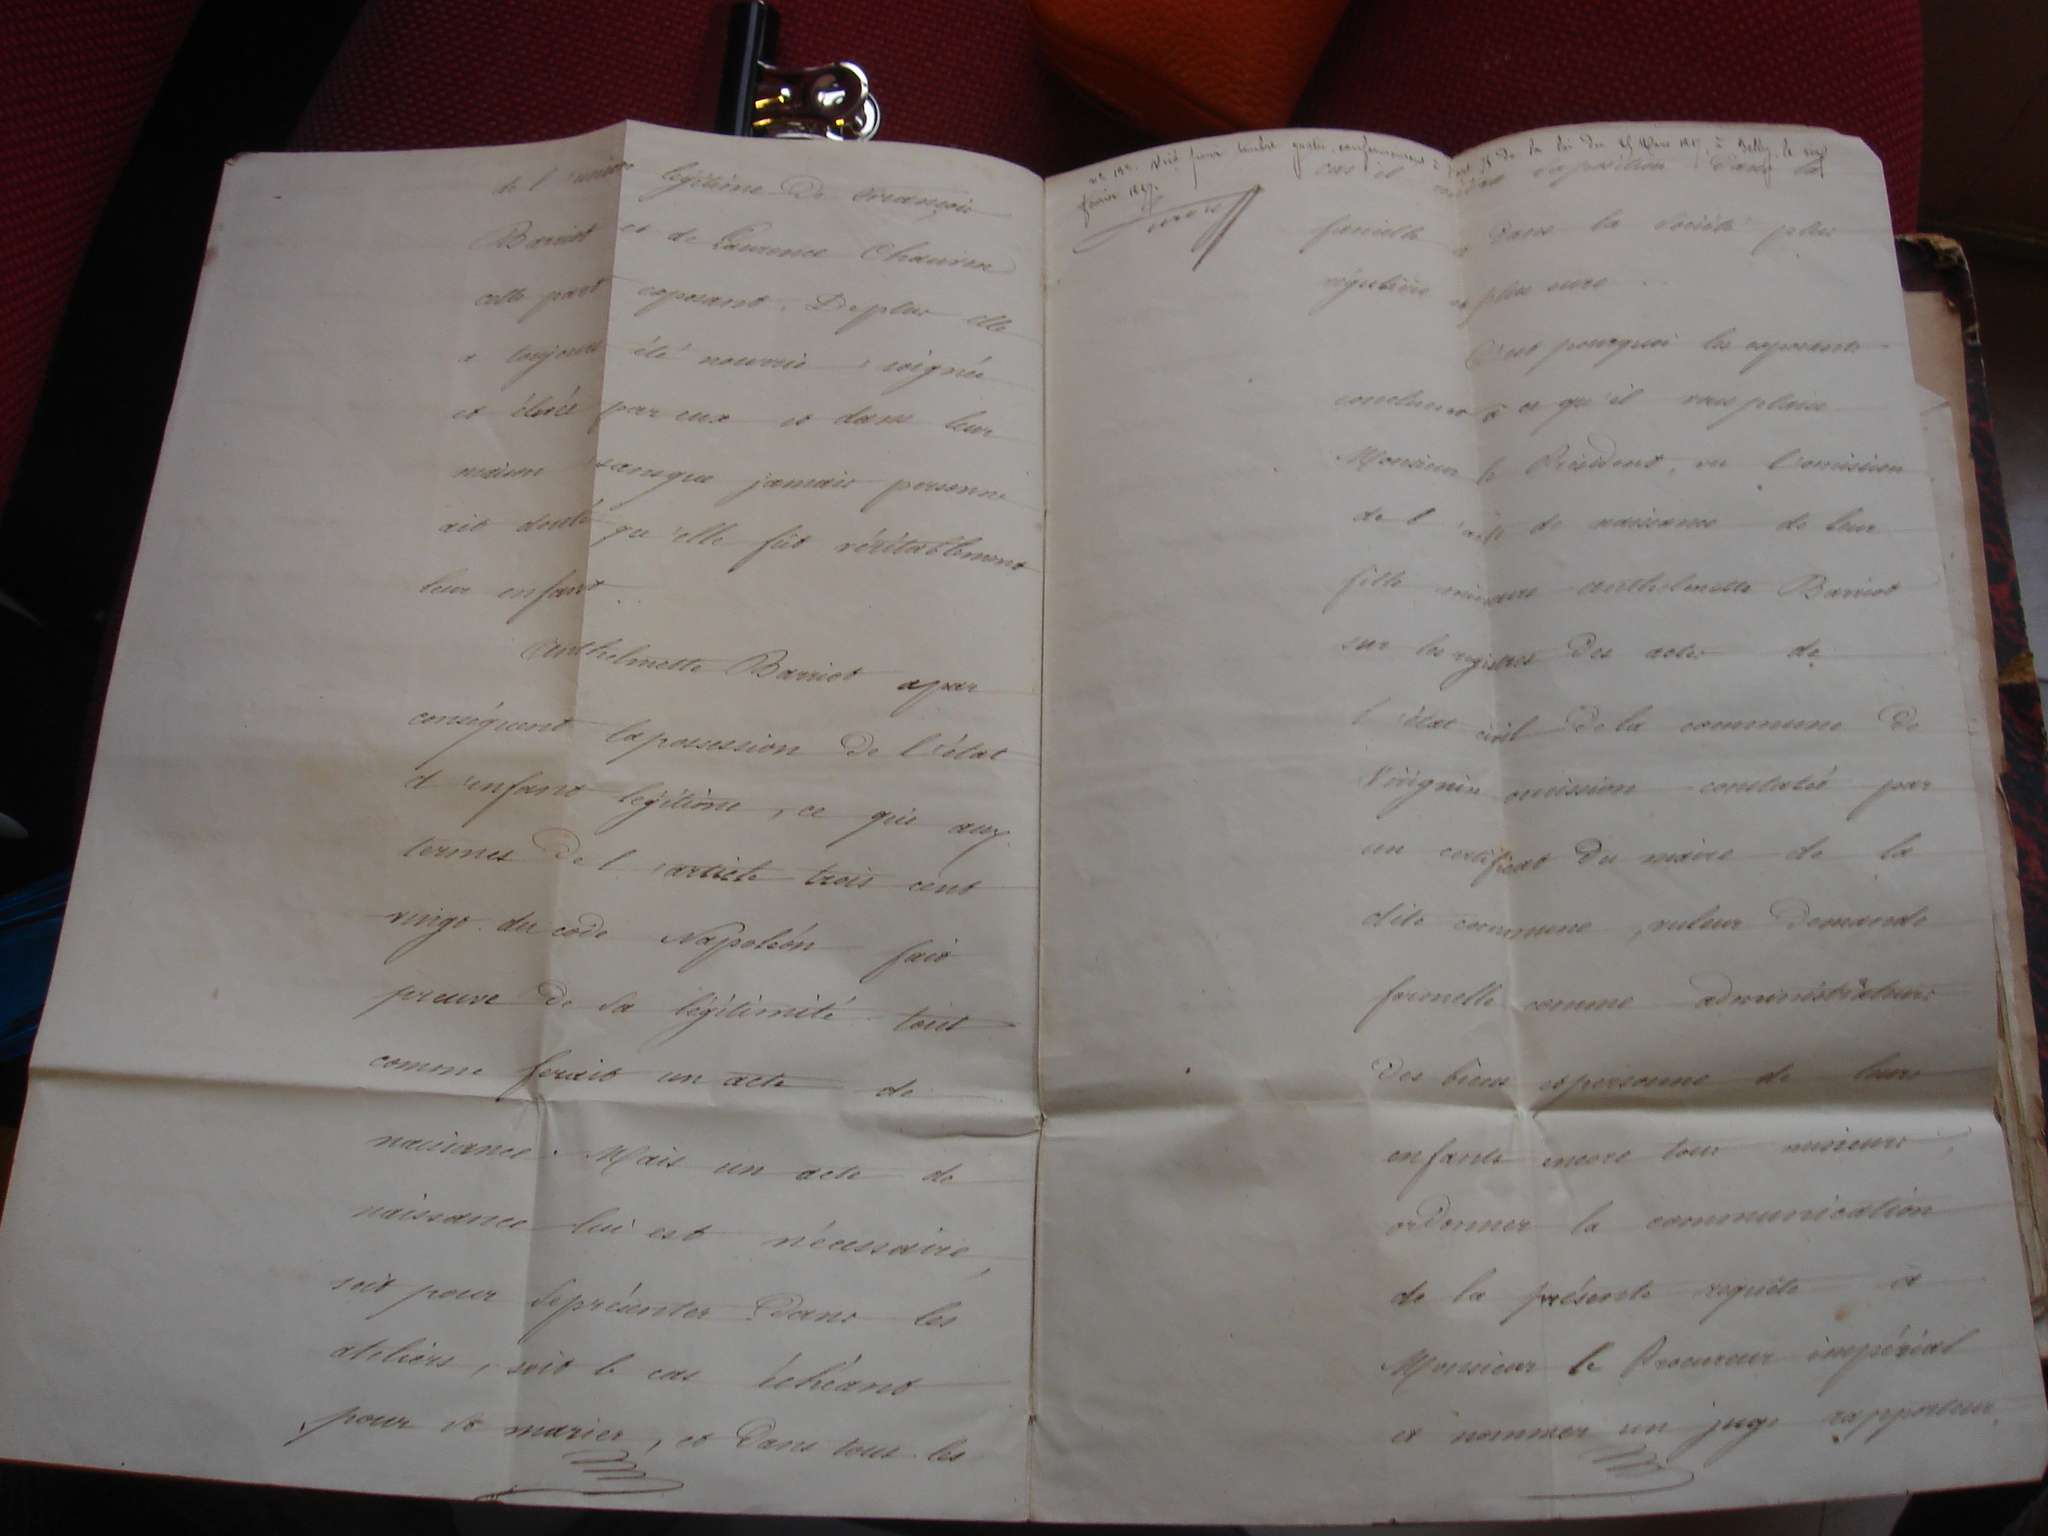 de l'union légitime de François
Barriot et de Laurence Chauren
cette part exposant. De plus elle
a toujours été nourrie, soignée
et élevée par eux et dans leur
maison sans que jamais personne
ait douté qu'elle fût véritablement
leur enfant.
Anthelmette Barriot a par
conséquent la possession de l'état
d'enfant légitime, ce qui aux
termes de l'article trois cent
vingt du code Napoléon fait
preuve de sa légitimité tout
comme ferait un acte de
naissance. Mais un acte de
naissance lui est nécessaire,
soit pour se présenter dans les
ateliers, soit le cas échéant
pour se marier, et dans tous les
n° 192. Visé pour timbre gratis, conformément à l'art. 75 de la loi du 25 Mars 1817, à Belley, le
février
cas il rendra sa position dans la
famille et dans la société plus
régulière et plus sure.
C'est pourquoi les exposants
concluent à ce qu'il vous plaise
Monsieur le Président, vu l'omission
de l'acte de naissance de leur
fille mineure Anthelmette Barriot
sur les registres des actes de
l'état civil de la commune de
Virignin omission constatée par
un certificat du maire de la
dite commune, vu leur demande
formelle comme administrateurs
des biens et personne de leurs
enfants encore tous mineurs,
ordonner la communication
de la présente requête à
Monsieur le Procureur impérial
et nommer un juge rapporteur